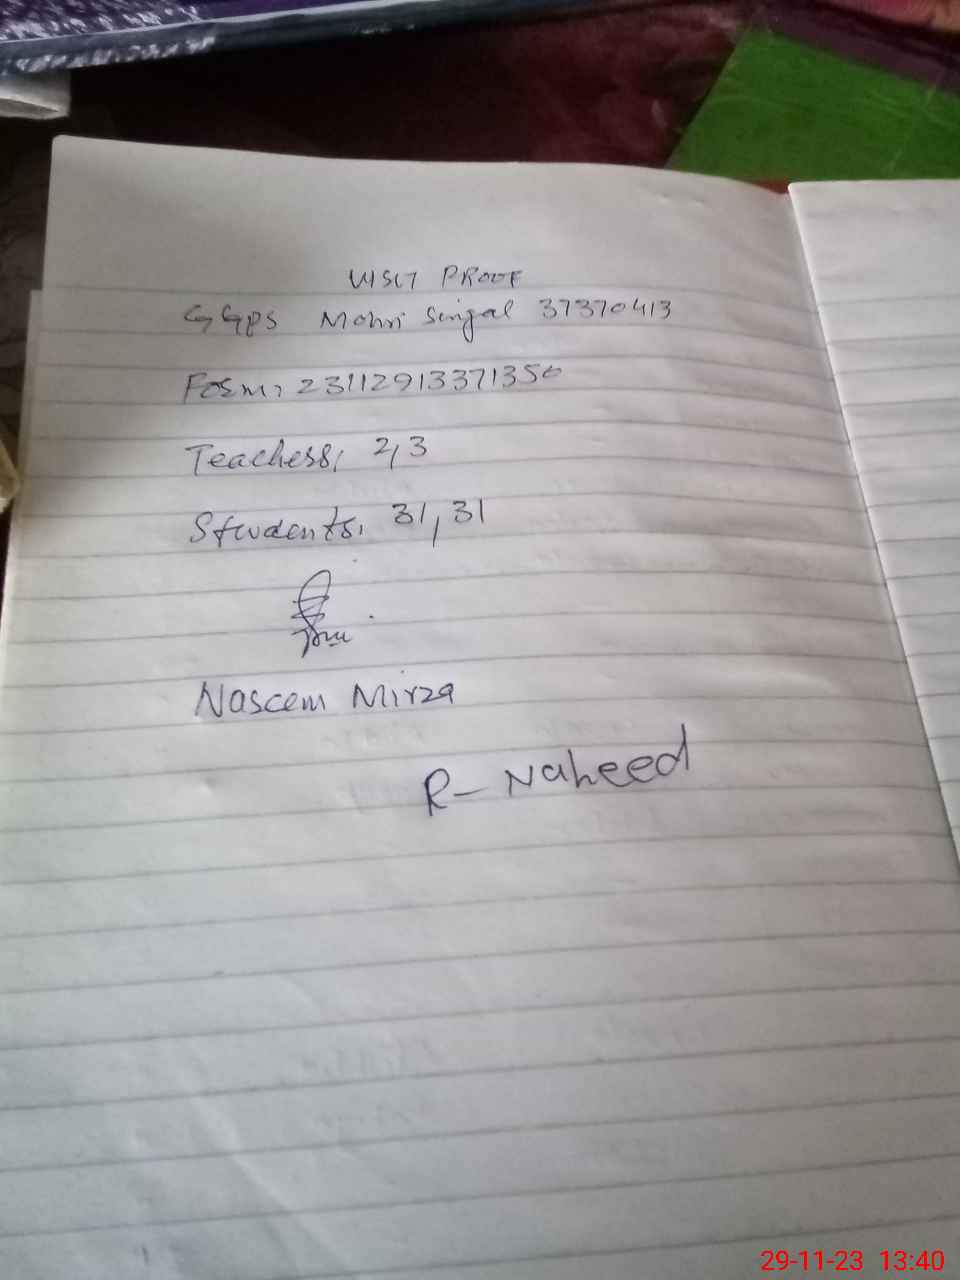 VISIT PROOF
GGPS Mohri Sengal 37370413
Form, 23112913371350
Teachers, 2,3
Students, 31,31
Naseem Mirza
R- Naheed
29-11-23 13:40